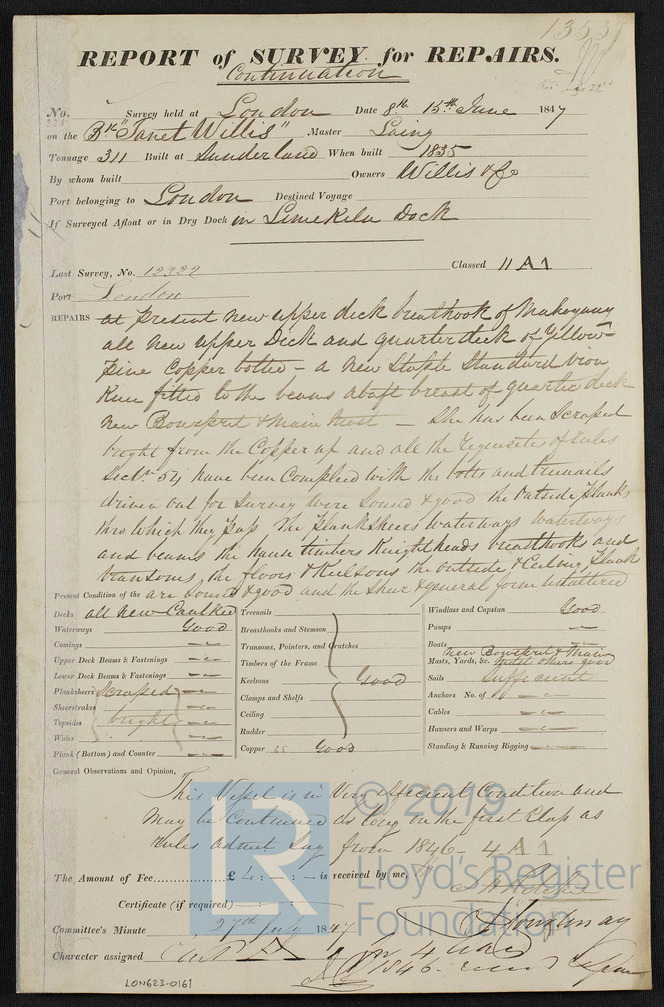 1353
REPORT of SURVEY for REPAIRS.
Continuation
No. Survey held at London Date 8th 15th June 1847
on the Bk "Janet Willis" Master Laing
Tonnage 311 Built at Sunderland When built 1835
By whom built Owners Willis & Co
Port belonging to London Destined Voyage
If Surveyed Afloat or in Dry Dock in Limekiln Dock
Last Survey, No. 12222 Classed 11 A1
Port London
REPAIRS at Present new upper deck breasthook of Mahogany
all new upper Deck and quarterdeck of Yellow
Pine Copper bolted - a new Staple Standard iron
Knee fitted to the beams abaft breast of quarter deck
new Bowsprit & Main Mast - She has been Scraped
bright from the Copper up and all the requisites of rules
Sectn 54 have been Complied with the bolts and treenails
driven out for Survey were Sound & good the Outside planks
thro which they pass the plank sheers waterways waterways
and beams the hawse timbers Knightheads breasthooks and
transoms, the floors & Keelsons the outside & Ceiling planks
are Sound & good and the Sheer & general form unaltered
Present Condition of the
Decks all new Caulked
Waterways Good
Comings
Upper Deck Beams & Fastenings
Lower Deck Beams & Fastenings
Planksheers Scraped
Sheerstrakes
Topsides bright
Wales
Plank (Bottom) and Counter
Treenails
Breasthooks and Stemson
Transoms, Pointers, and Crutches
Timbers of the Frame
Keelsons Good
Clamps and Shelfs
Ceiling
Rudder
Copper Good
Windlass and Capstan Good
Pumps
Boats
new Bowsprit & Main
Masts, Yards, &c. Mast others good
Sails Sufficient
Anchors No. of
Cables
Hawsers and Warps
Standing & Running Rigging
General Observations and Opinion,
This Vessel is in Very efficient Condition and
may be Continued as long on the first Class as
rules admit Say from 1846 - 4 A1
The Amount of Fee £ 4 : - : - is received by me,
Certificate (if required)
Committee's Minute 27th July 1847
Character assigned
1846
LON623-0161
© 2019
Lloyd's Register
Foundation
LR